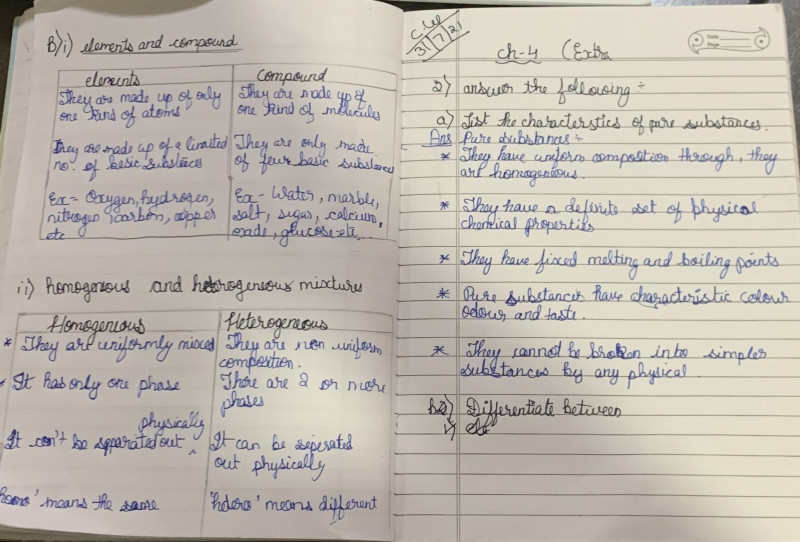 B) i) elements and compound
elements
They are made up of only
one kind of atoms
They are made up of a limited
no. of basic substances
Ex- Oxygen, hydrogen,
nitrogen, carbon, copper
etc
Compound
They are made up of
one kind of molecules
They are only made
of four basic substances
Ex- Water, marble,
salt, sugar, calcium,
oxade, glucose etc...
ii) homogenious and heterogeneous mixtures
Homogenious
* They are uniformly mixed
* It has only one phase
physically
It can't be separated out ^
homo' means the same
Heterogeneous
They are non uniform
composition.
There are 2 or more
phases
It can be seperated
out physically
'hetero' means different
31/7/21
Ch-4 (Extra
Date
Page
2) answer the following :-
a) List the characterstics of pure substances.
Ans Pure substances :-
* They have uniform compostion through, they
are homogenious.
* They have a definite set of physical
chemical properties
* They have fixed melting and boiling points
* Pure substances have characteristic colour
odour and taste.
* They cannot be broken into simpler
substances by any physical
b) Differentiate between
i)